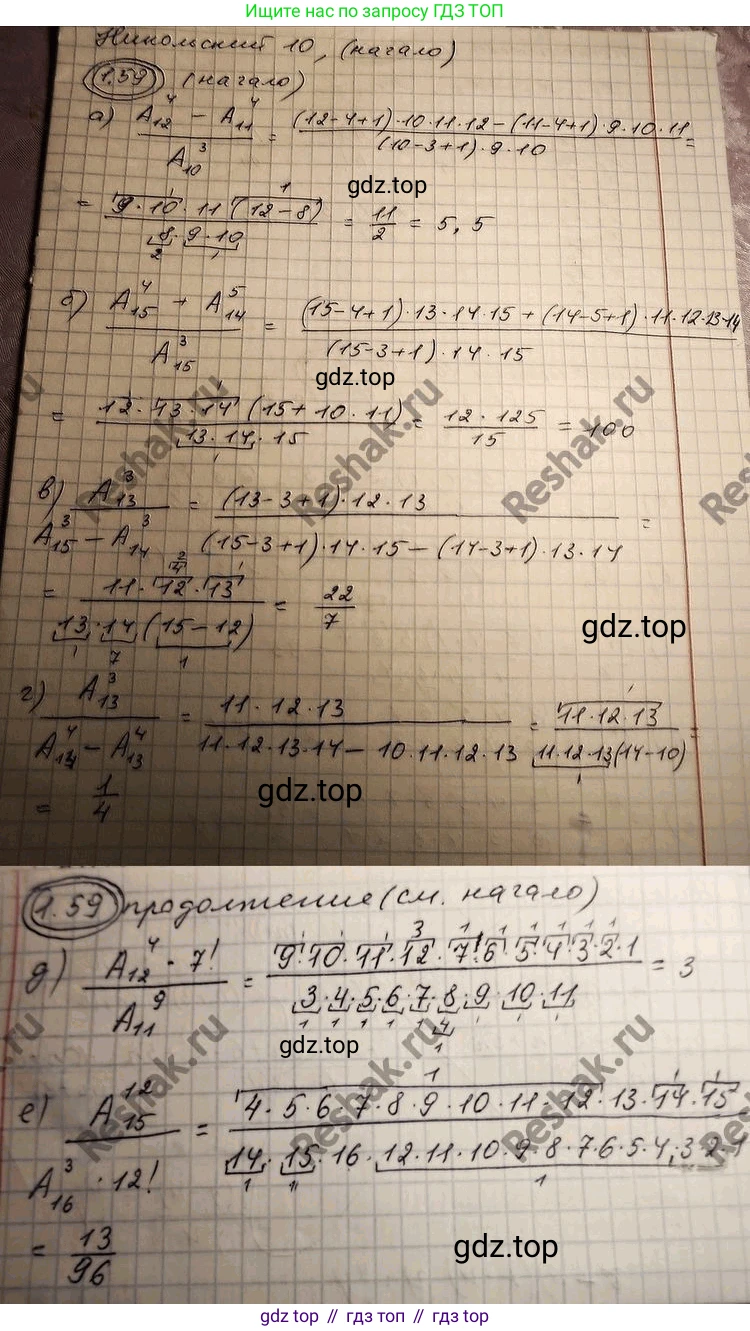 Ищите нас по запросу ГДЗ ТОП
Никольский 10, (начало)
1.59 (начало)
а) (A₁₂⁴ − A₁₁⁴)/A₁₀³ = ((12−4+1)·10·11·12 − (11−4+1)·9·10·11)/((10−3+1)·9·10) =
gdz.top
= (9·10·11(12−8))/(8·9·10) = 11/2 = 5,5
б) (A₁₅⁴ + A₁₄⁵)/A₁₅³ = ((15−4+1)·13·14·15 + (14−5+1)·11·12·13·14)/((15−3+1)·14·15)
gdz.top
= (12·13·14(15+10·11))/(13·14·15) = (12·125)/15 = 100
Reshak.ru Reshak.ru Reshak.ru
в) A₁₃³/(A₁₅³ − A₁₄³) = ((13−3+1)·12·13)/((15−3+1)·14·15 − (14−3+1)·13·14) =
= (11·12·13)/(13·14(15−12)) = 22/7
gdz.top
г) A₁₃³/(A₁₄⁴ − A₁₃⁴) = (11·12·13)/(11·12·13·14 − 10·11·12·13) = (11·12·13)/(11·12·13(14−10)) =
= 1/4
gdz.top
1.59 продолжение (см. начало)
д) (A₁₂⁴·7!)/A₁₁⁹ = (9·10·11·12·7·6·5·4·3·2·1)/(3·4·5·6·7·8·9·10·11) = 3
gdz.top
Reshak.ru Reshak.ru Reshak.ru
е) A₁₅¹²/(A₁₆³·12!) = (4·5·6·7·8·9·10·11·12·13·14·15)/(14·15·16·12·11·10·9·8·7·6·5·4·3·2·1)
= 13/96
gdz.top
gdz top // гдз топ // гдз.топ // gdz.top